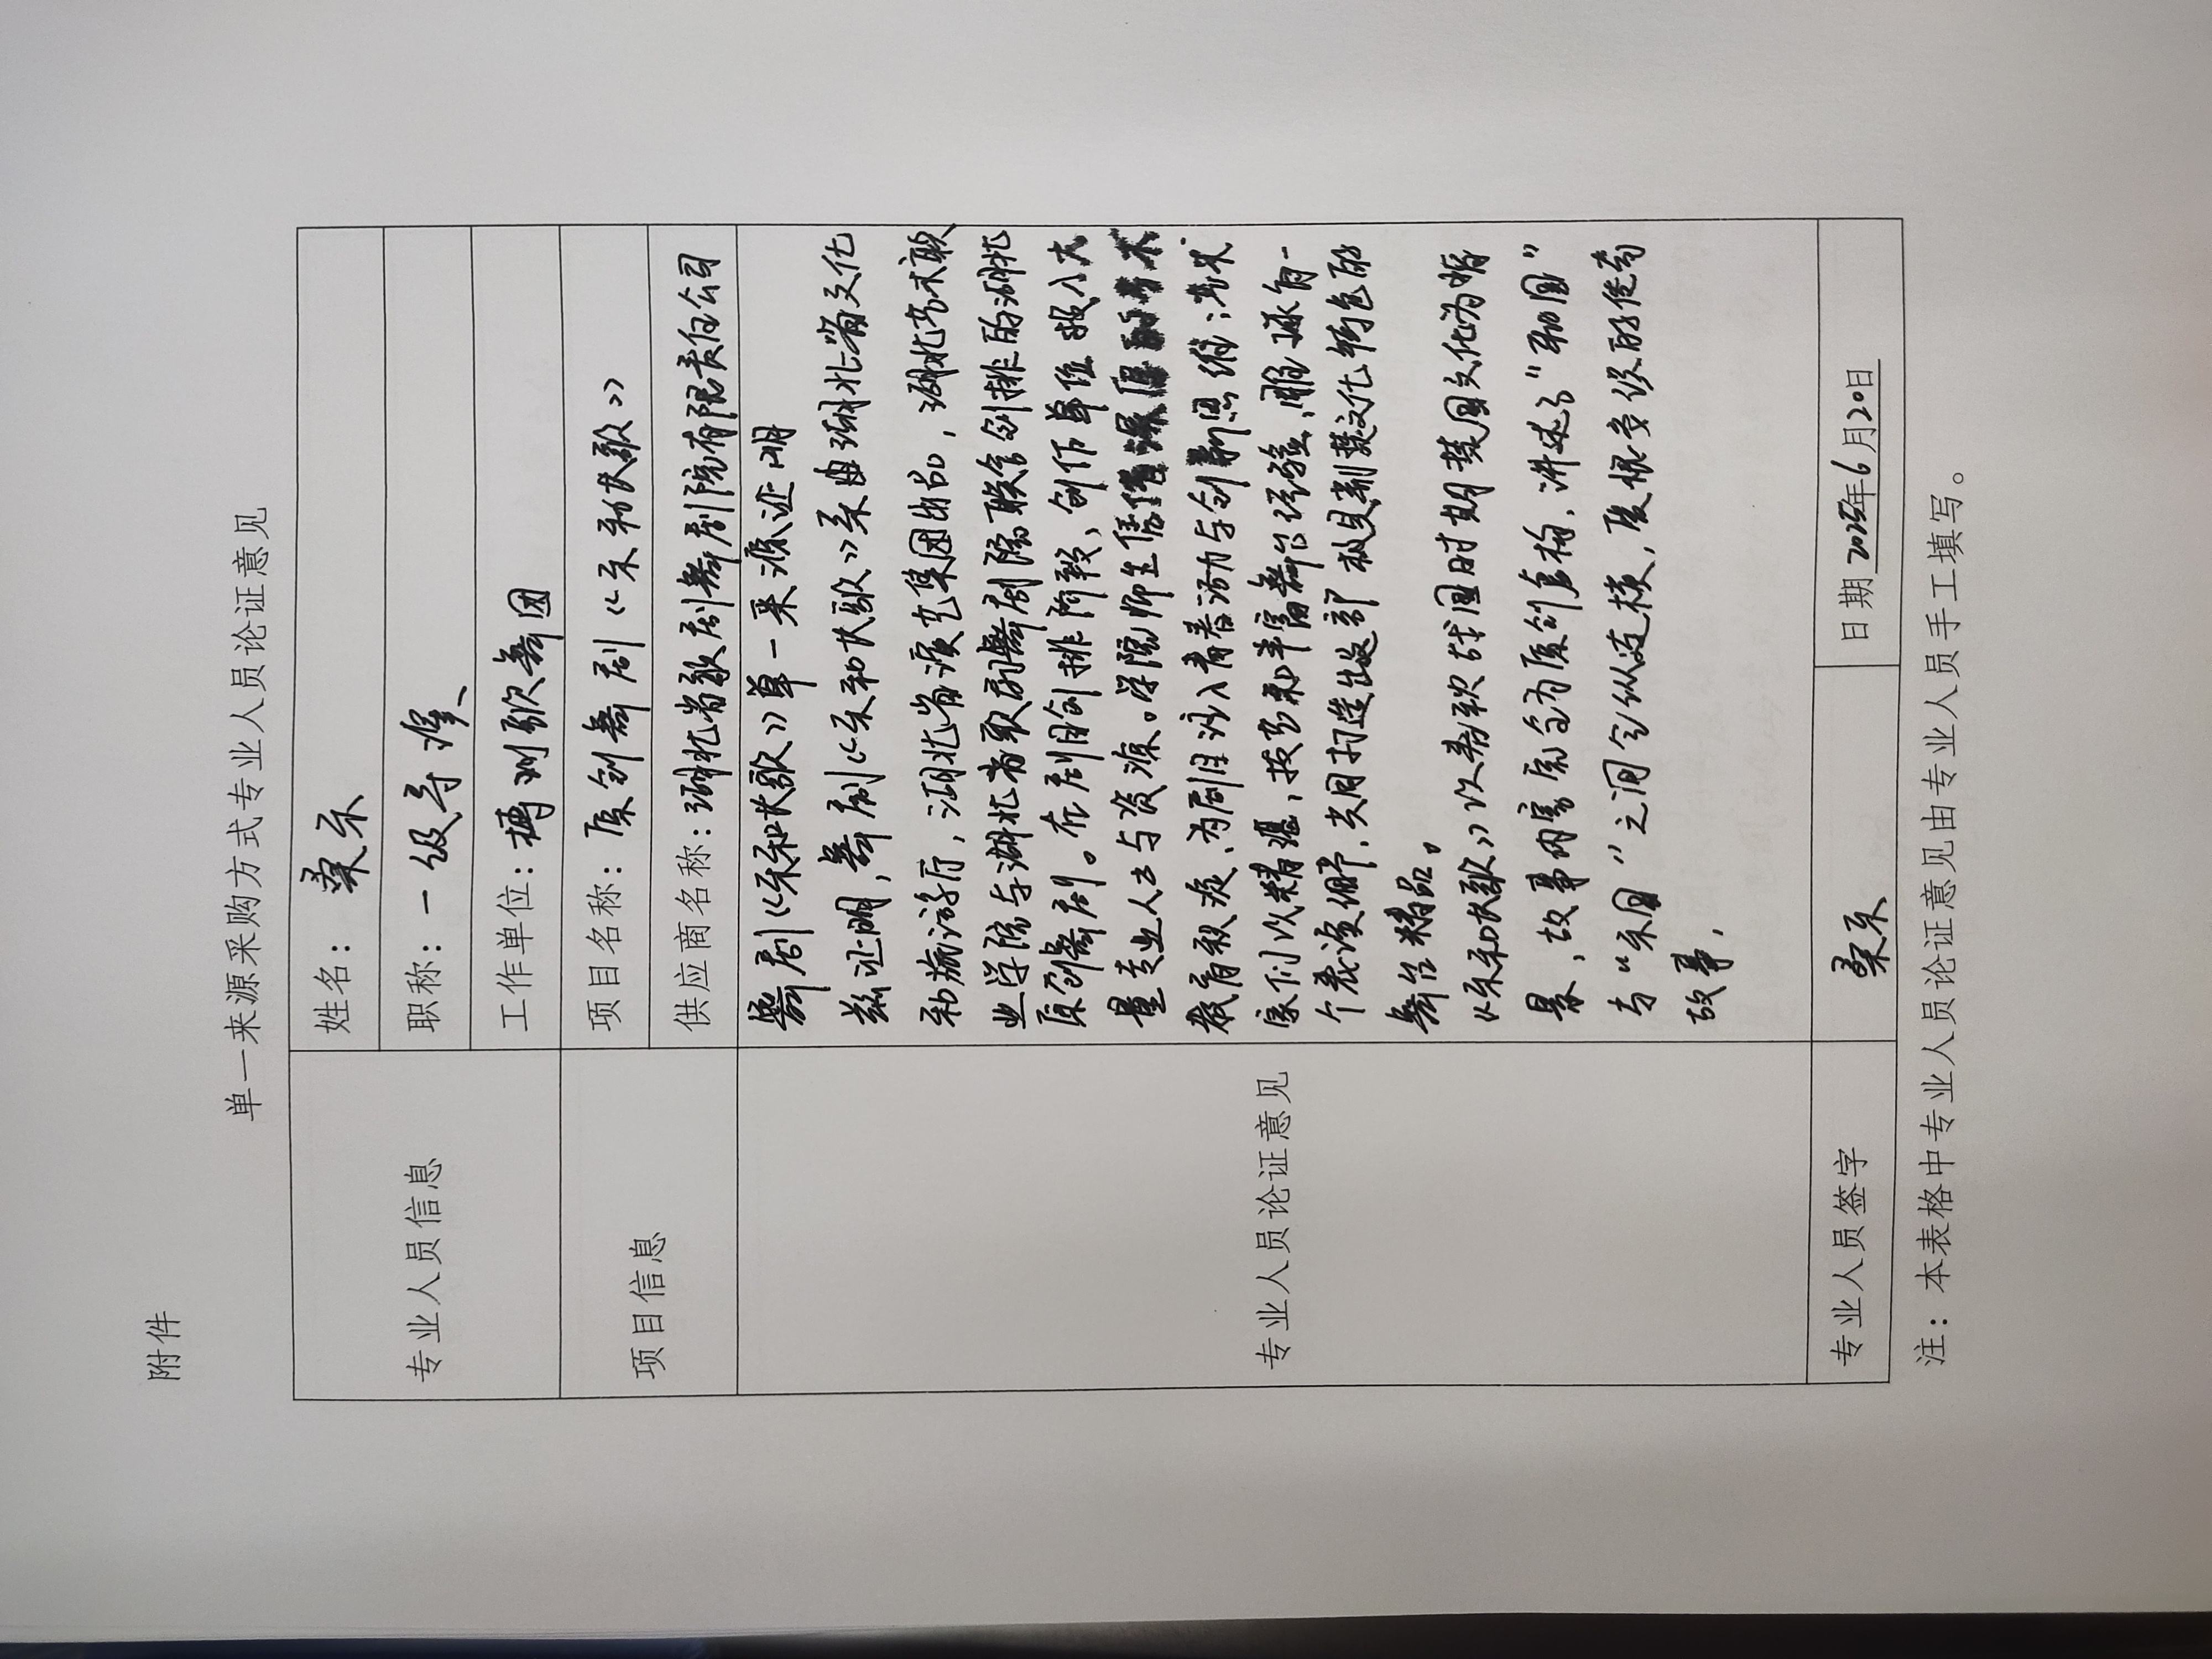 附件
单一来源采购方式专业人员论证意见
专业人员信息
姓名：桑
职称：一级导演
工作单位：歌舞团
项目信息
项目名称：原创舞剧《歌》
供应商名称：湖北省歌剧舞剧院有限责任公司
专业人员论证意见
舞剧《歌》单一来源证明
兹证明，舞剧《歌》系由湖北省文化
和旅游厅，湖北省演艺集团出品，湖北艺术职
业学院与湖北省歌剧舞剧院联合创排的湖北
原创舞剧。在剧目创排阶段、创作单位投入大
量专业人士与资源。学院师生凭借
教育积淀、为剧目注入青春活力与创新思维；艺术
家们以精湛技艺和丰富舞台经验，一
个表演细节，共同打造出这部极具荆楚文化特色的
舞台精品。
《歌》以春秋战国时期楚国文化为背
景，故事内容完全为原创虚构，讲述了“国”
与“”之间，爱恨交织的传奇
故事，
专业人员签字
桑
日期 2025年6月20日
注：本表格中专业人员论证意见由专业人员手工填写。